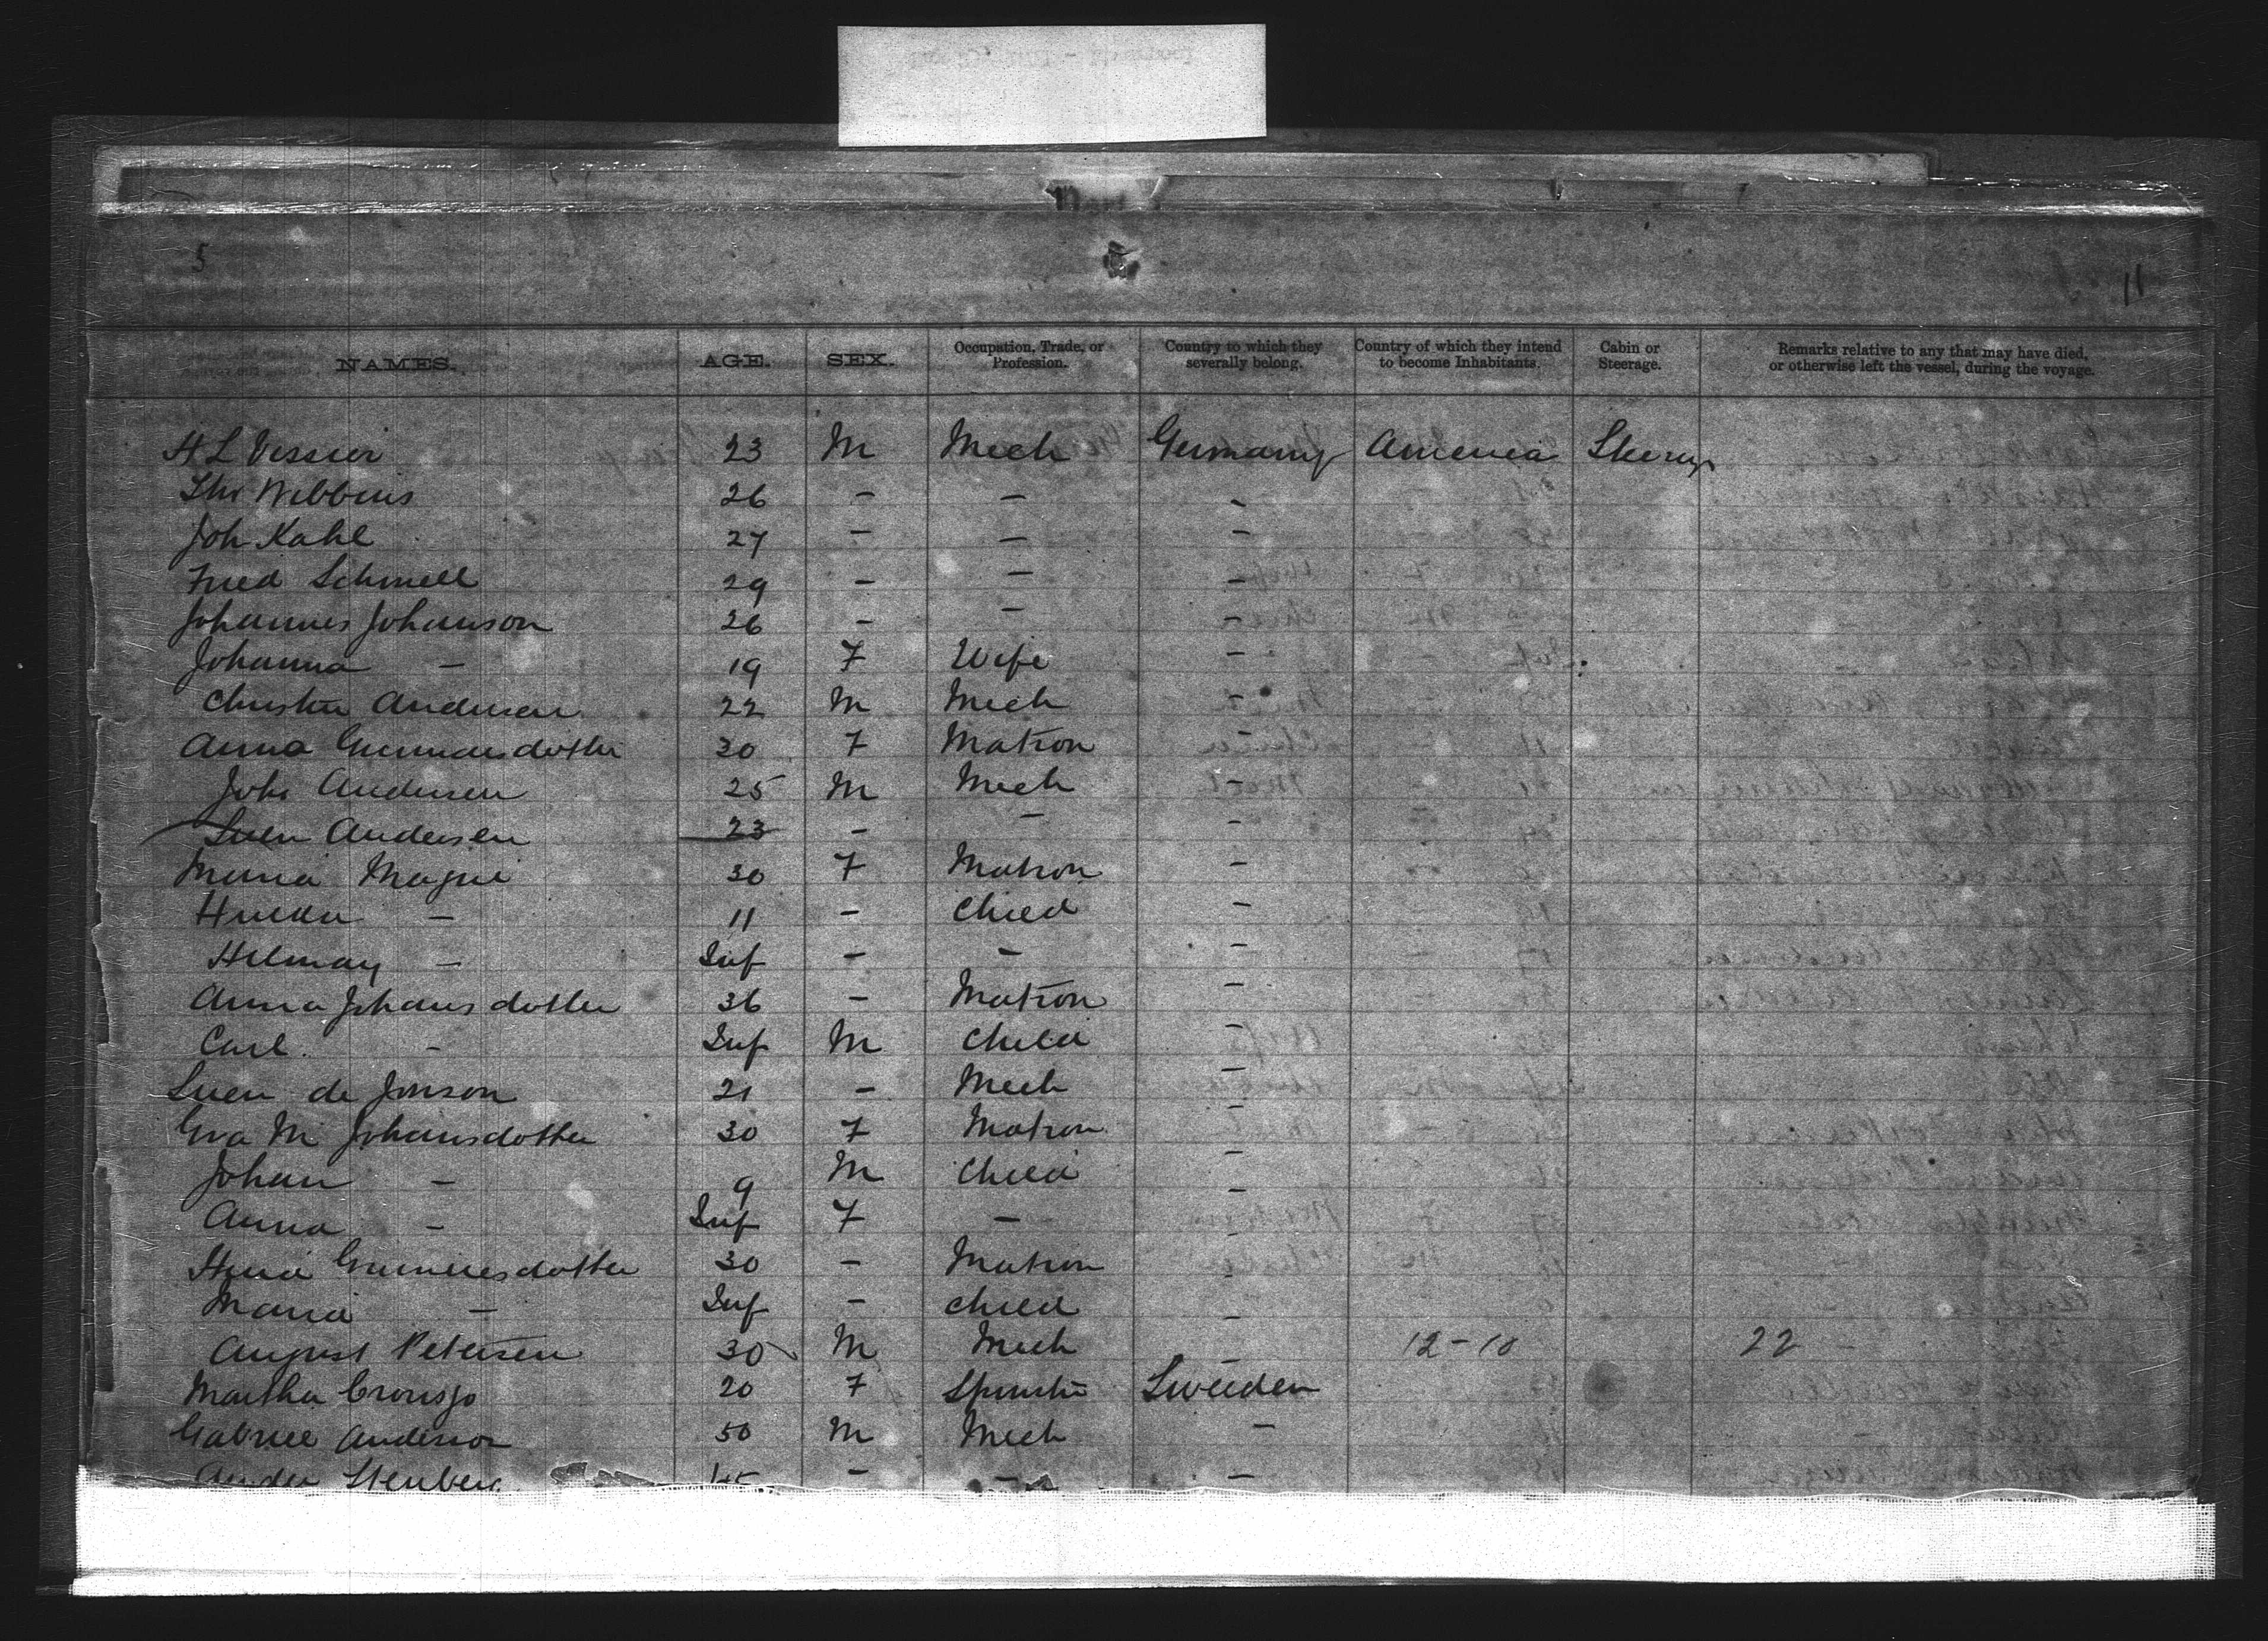 5
11
NAMES. AGE. SEX. Occupation, Trade, or Profession. Country to which they severally belong. Country of which they intend to become Inhabitants. Cabin or Steerage. Remarks relative to any that may have died, or otherwise left the vessel, during the voyage.
H L Vessier 23 M Mech Germany America
26 - - -
Joh Kahl 27 - - -
Fred Schmell 29 - - -
Johannes Johanson 26 - - -
Johanna - 19 F Wife -
Andersen 22 M Mech -
Anna Gunnarsdotter 30 F Matron
John Andersen 25 M Mech -
Sven Andersen 23 - - -
Maria 30 F Matron -
- 11 - Child -
- Inf - - -
Anna Johansdotter 36 - Matron -
Carl - Inf M Child -
Sven de Jonson 21 - Mech -
Eva M Johansdotter 30 F Matron -
Johan - 9 M Child -
Anna - Inf F - -
30 - Matron -
Maria - Inf - Child -
August Petersen 30 M Mech - 12-10 22
Martha 20 F Sweeden
Gabriel Anderson 50 M Mech -
45 - - -